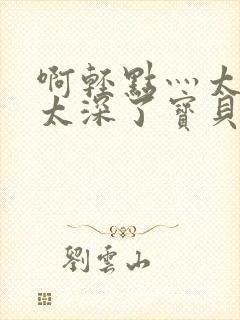 啊轻點灬太
太深了寶貝
劉雲山